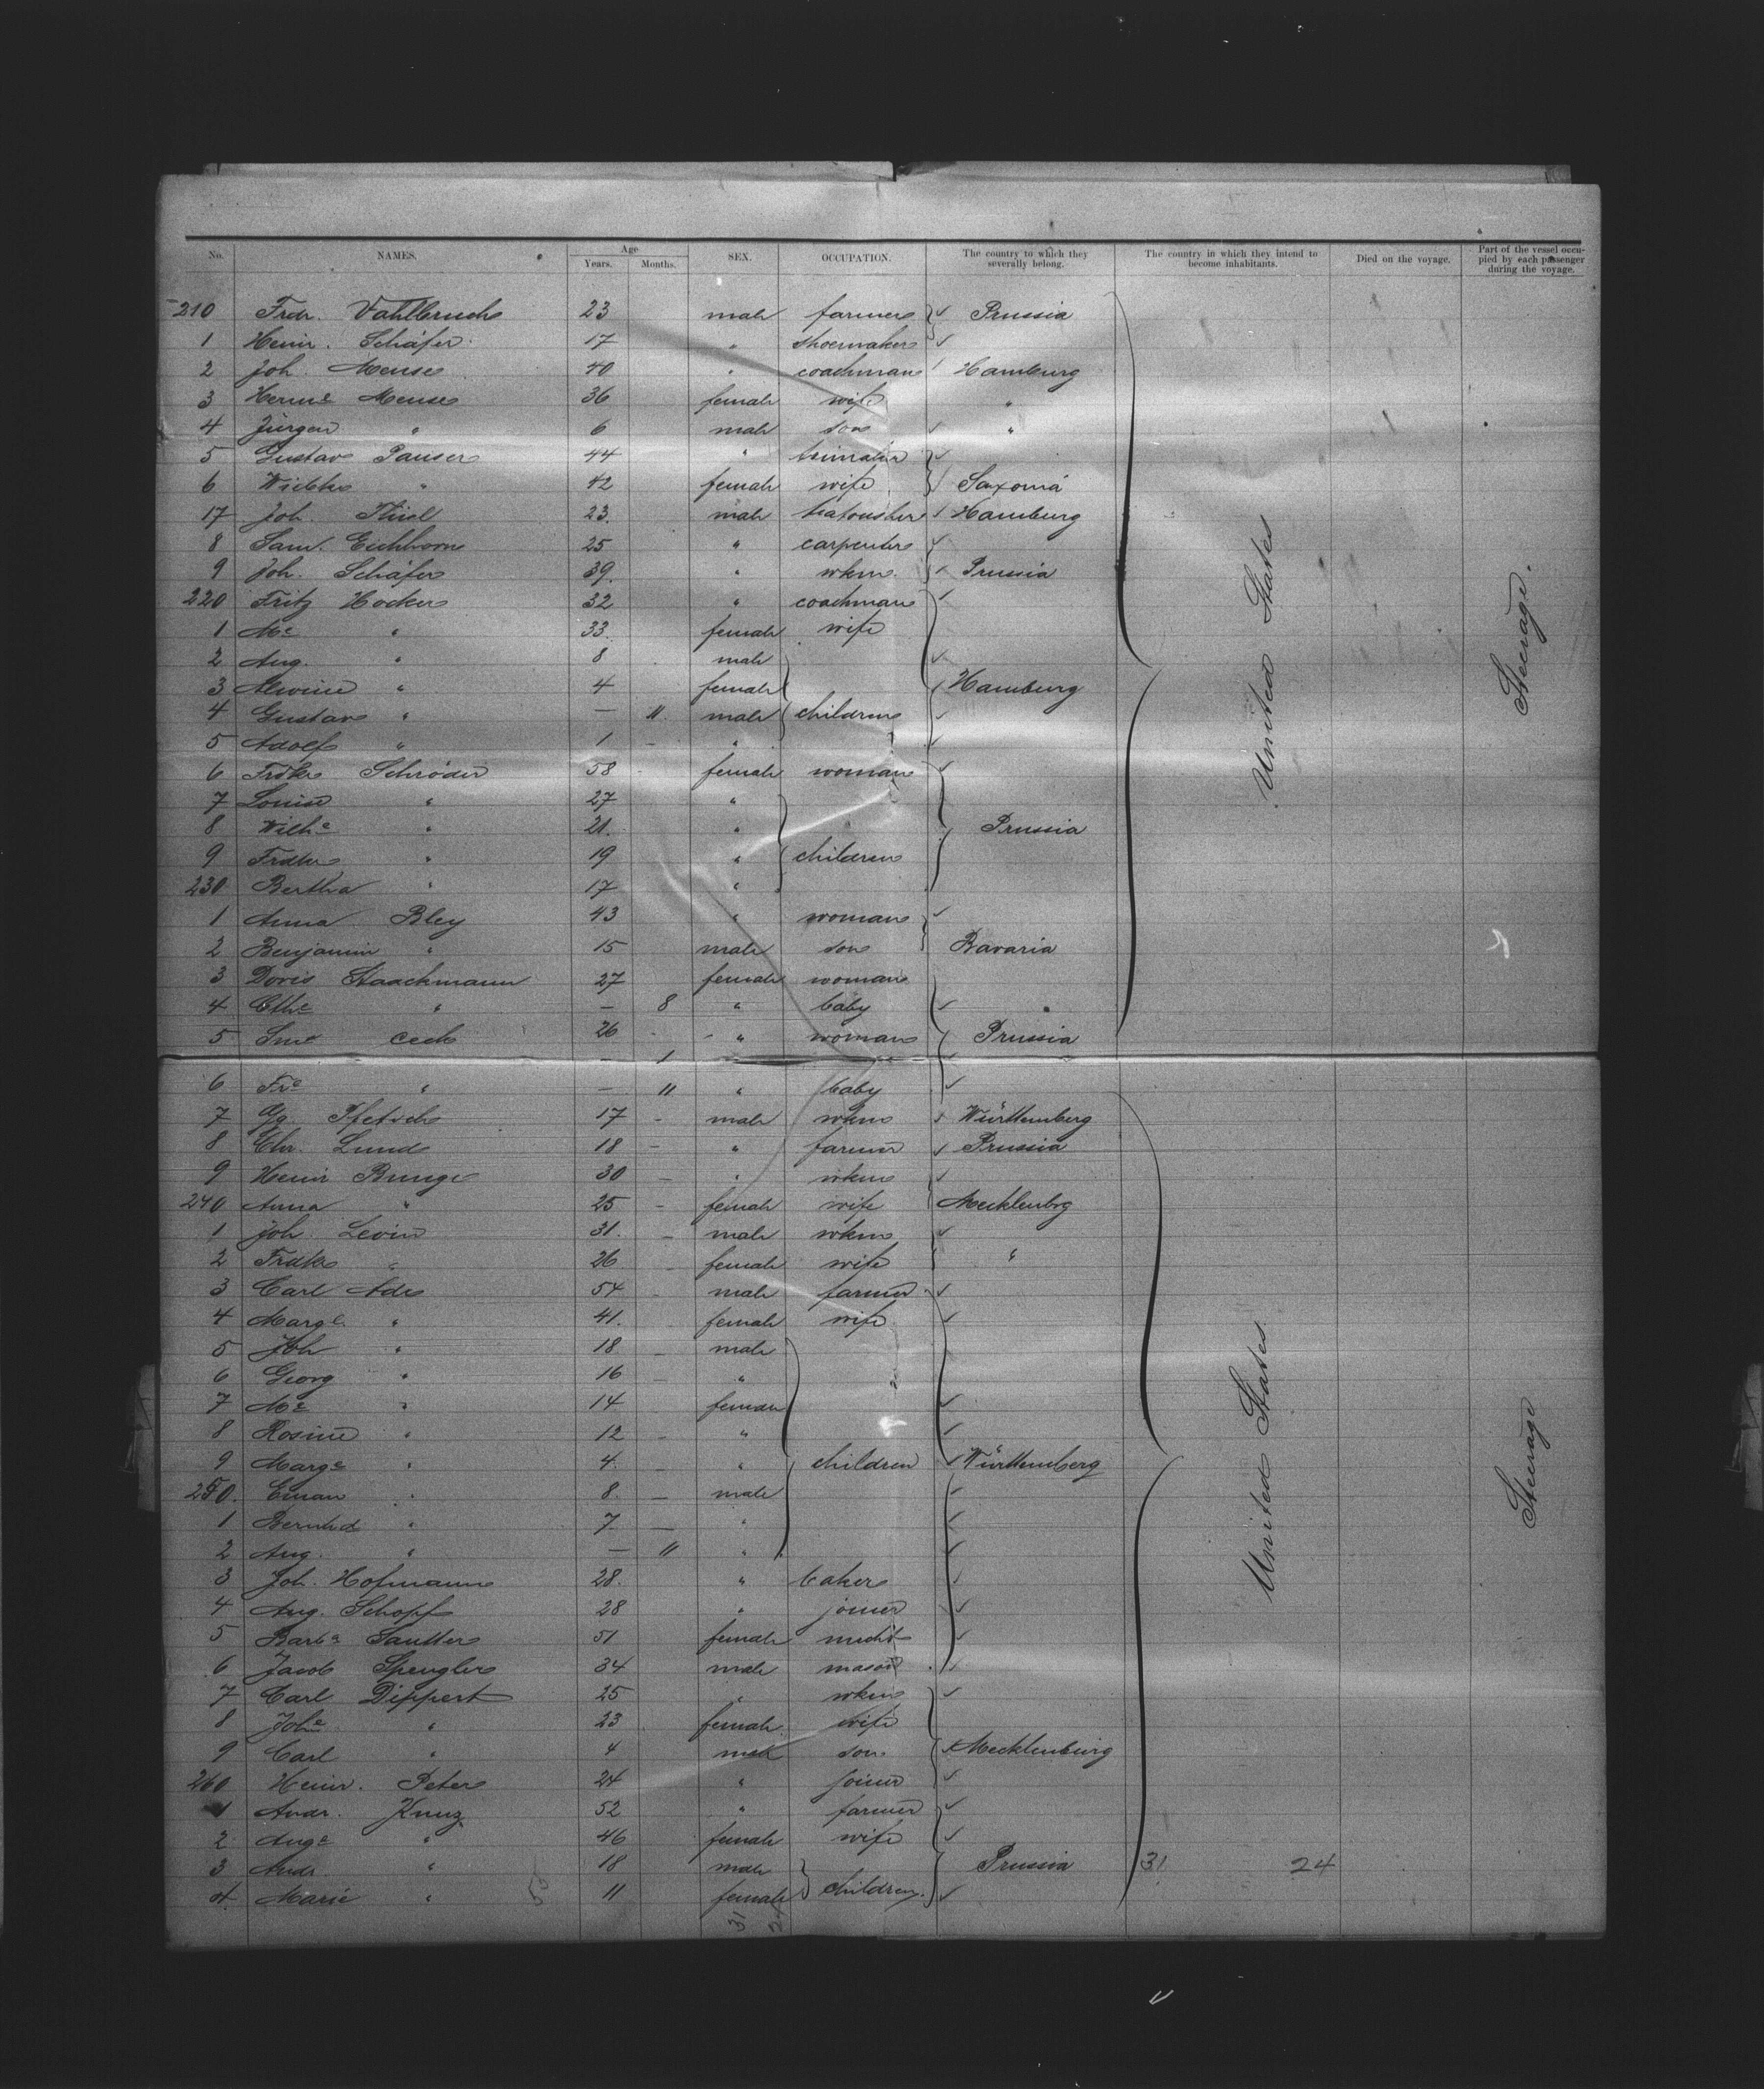 No. NAMES. Age Years. Months. SEX. OCCUPATION. The country to which they severally belong. The country in which they intend to become inhabitants. Died on the voyage. Part of the vessel occupied by each passenger during the voyage.
210 Frdr. Vahlbruch 23 male farmer Prussia
1 Heinr. Schäfer 17 " shoemaker
2 Joh. Mense 40 " coachman Hamburg
3 Herme Mense 36 female wife "
4 Jürgen " 6 male son "
5 Gustav Panser 44 "
6 " 42 female wife Saxonia
17 Joh. Thiel 23 male Hamburg
8 Sam. Eichhorn 25 " carpenter
9 Joh. Schäfer 39 " wkm. Prussia
220 Fritz Hocker 32 " coachman
1 Me " 33 female wife
2 Aug. " 8 male
3 Alwine " 4 female Hamburg
4 Gustav " — 11 male children
5 Adolf " 1 — "
6 Frdke Schröder 58 female woman
7 Louise " 27 "
8 Wilhe " 21 " Prussia
9 Frdke " 19 " children
230 Bertha " 17 "
1 Anna Bley 43 " woman
2 Benjamin " 15 male son Bavaria
3 Doris Staackmann 27 female woman
4 Cthe " — 8 " baby
5 26 " woman Prussia
6 Fre " — 11 " baby
7 17 male wkm Württemberg
8 Chr. Lund 18 " farmer Prussia
9 Heinr Bunge 30 " wkm
240 Anna " 25 female wife Mecklenbrg
1 Joh. Levin 31 male wkm
2 Frdke " 26 female wife "
3 Carl Ade 54 male farmer
4 Marge " 41 female wife
5 Joh " 18 male
6 Georg " 16 "
7 Me " 14 female
8 Rosine " 12 "
9 Marge " 4 " children Württemberg
250 Eman " 8 male
1 Bernhd " 7 "
2 Aug. " — 11 "
3 Joh. Hofmann 28 " baker
4 Aug. Schopf 28 " joiner
5 Barbe Sautter 51 female
6 Jacob Spengler 34 male mason
7 Carl Dippert 25 " wkm
8 Johe " 23 female wife
9 Carl " 4 male son Mecklenburg
260 Heinr. Peter 24 " joiner
1 Andr. Kunz 52 " farmer
2 Auge " 46 female wife
3 Andr. " 18 male Prussia 31 24
4 Marie " 11 female children
55
31 24
United States
Steerage.
United States.
Steerage